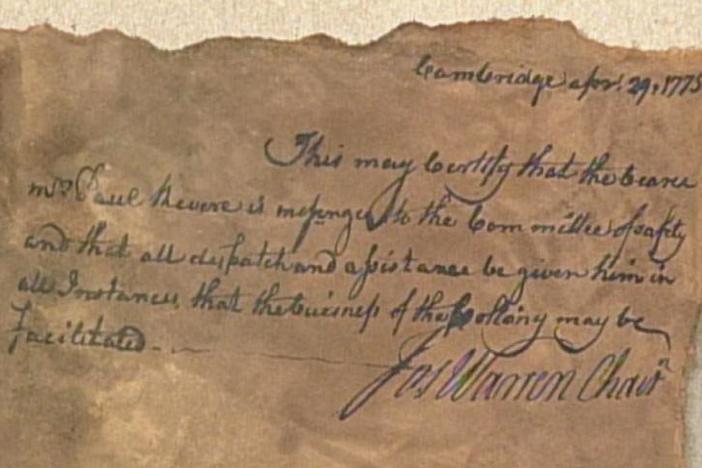 Cambridge apr. 29, 1775
This may Certify that the bearer
mr. Paul Revere is messenger to the Committee of safty
and that all dispatch and assistance be given him in
all Instances, that the buisness of the Collony may be
facilitated
Jos Warren Chairn